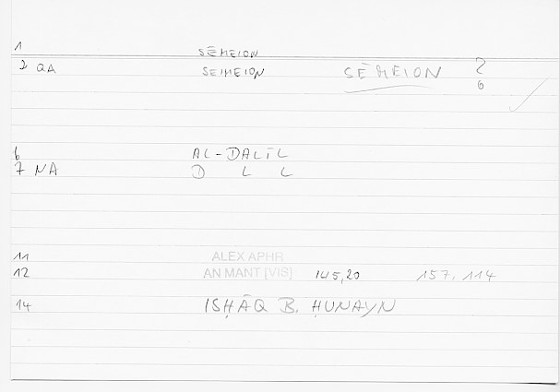 1 SĒMEION
2 QA SEIMEION SĒMEION 2
6
6 AL-DALĪL
7 NA D L L
11 ALEX APHR
12 AN MANT [VIS] 145,20 157.114
14 ISḤĀQ B. ḤUNAYN